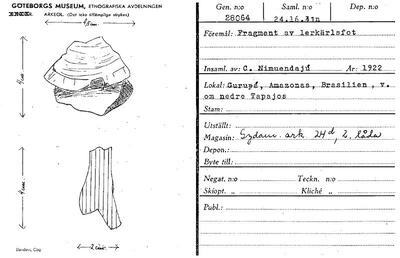 GÖTEBORGS MUSEUM, ETNOGRAFISKA AVDELNINGEN
ARKEOL. (Det icke tillämpliga strykes)
Gen. n:o
Saml. n:o
Dep. n:o
28064
24.16.
Föremål: Fragment av lerkärlsfot
Insaml. av: C. Nimuendajú
År: 1922
Lokal: Gurupá, Amazonas, Brasilien, v.
om nedre Tapajos
Stam:
Utställt:
Magasin: Sydam. ark 24d, 2. låda
Depon.:
Byte till:
Negat. n:o
Teckn. n:o
Skiopt. „
Kliché „
Publ.:
2 cm.